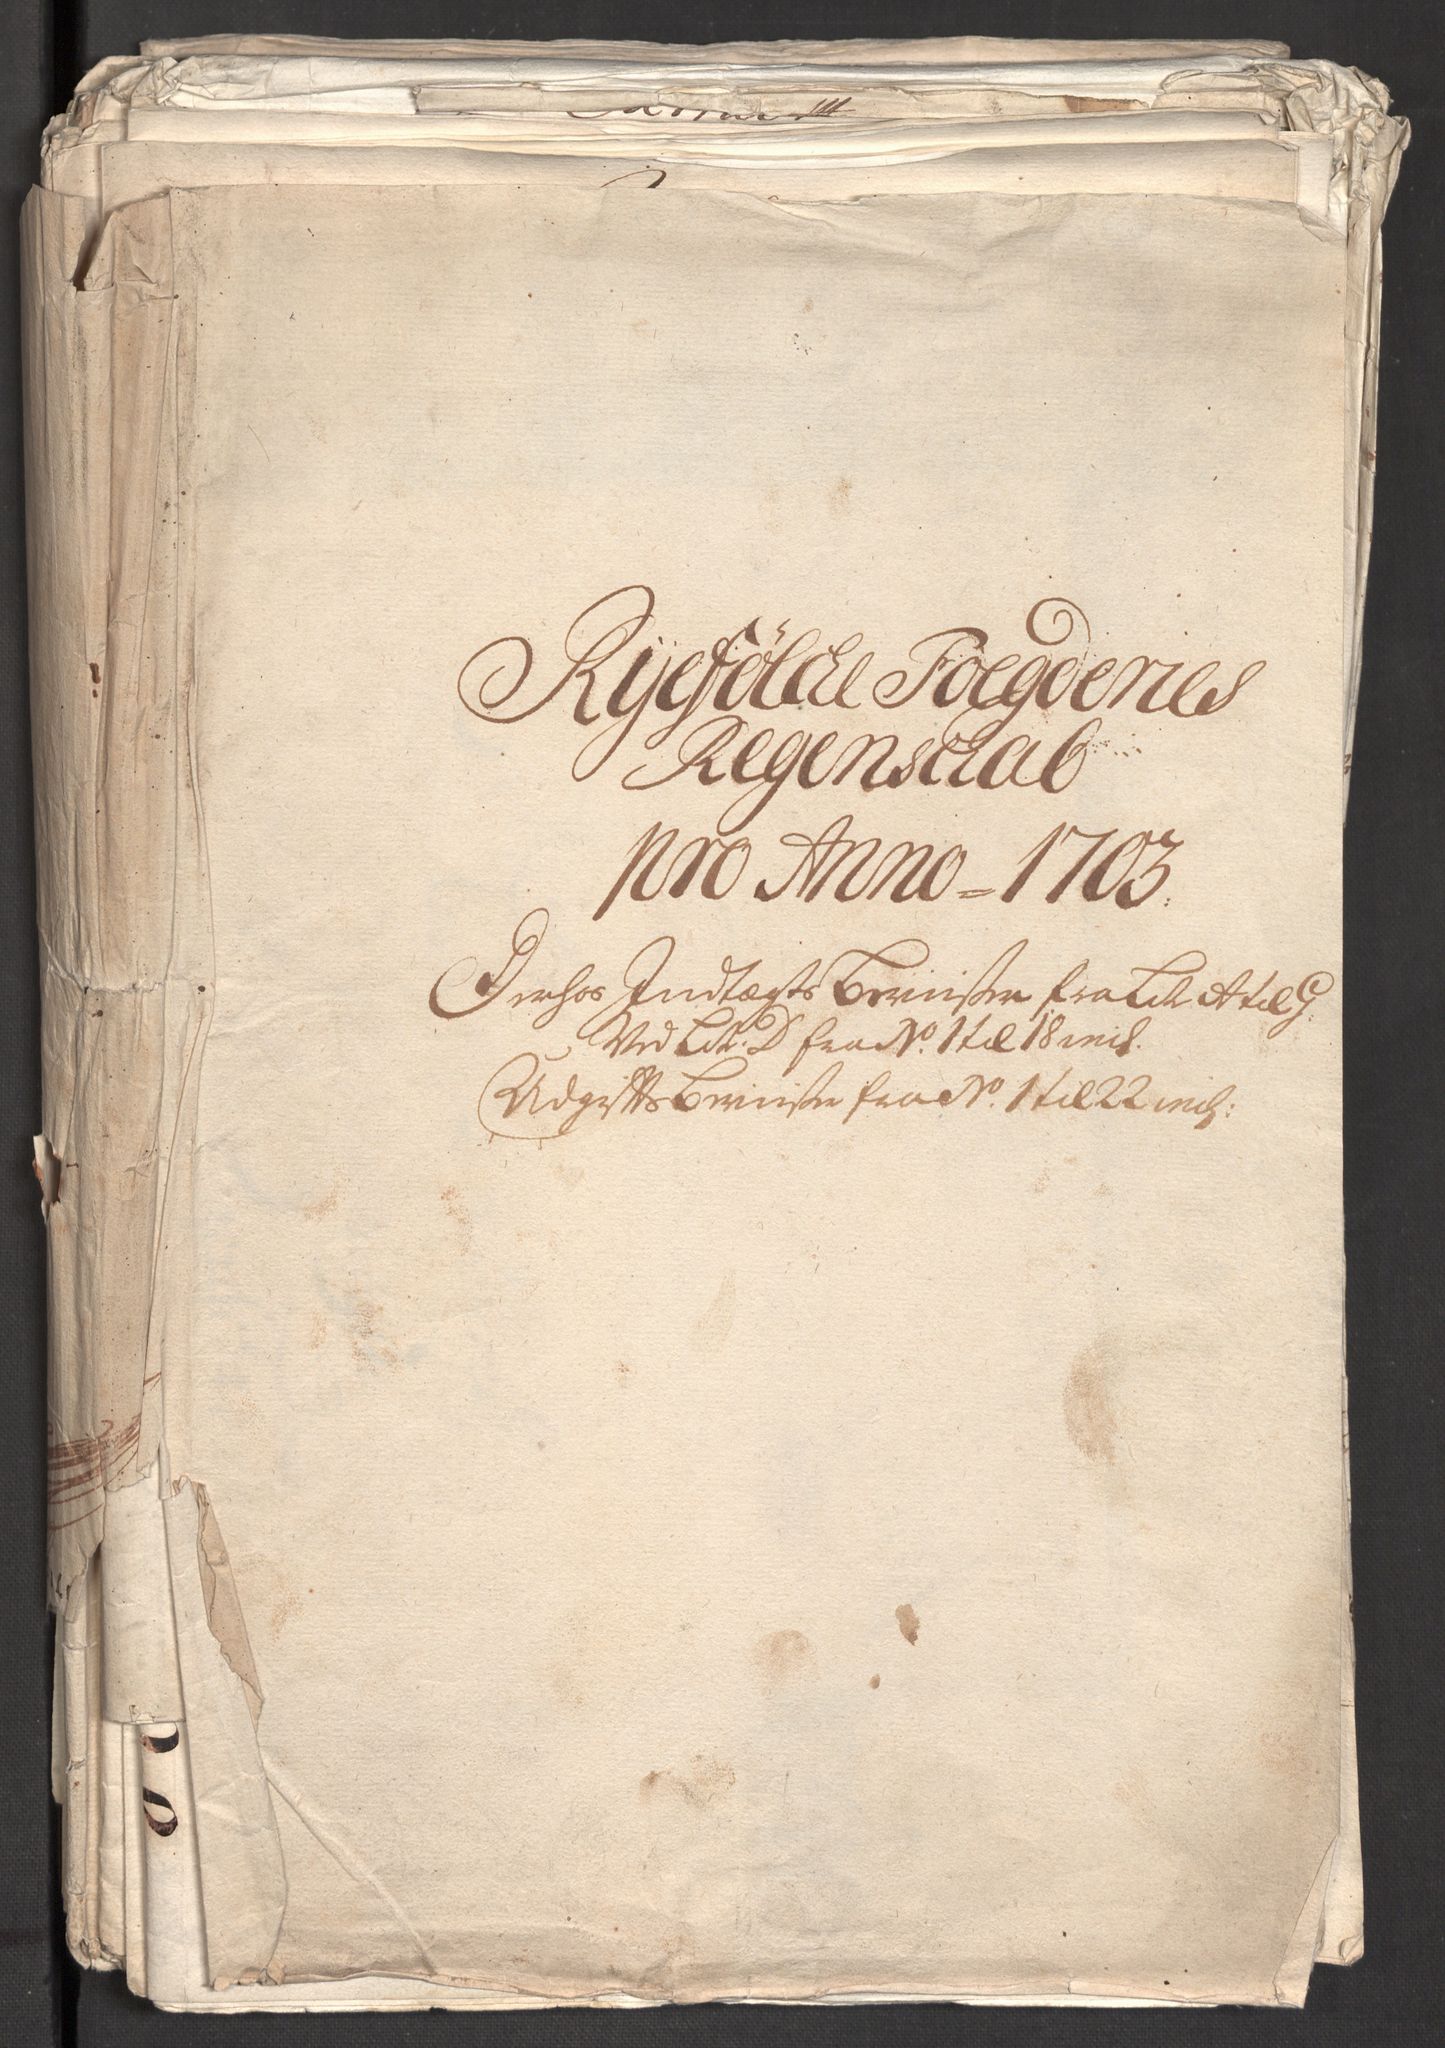 Ryefölcke Foegderies
Regenskab
pro Anno = 1703.
Derhos Indtægts Beviiser fra Lit. A til G:
Ved Lit. D fra No. 1 til 18 incl.
Udgiffts Beviiser fra No. 1 til 22 incl: